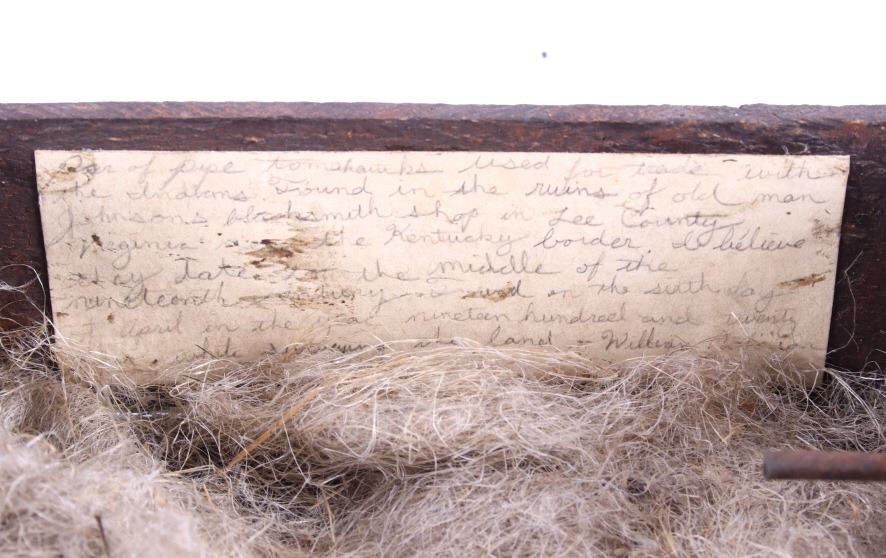 Pair of pipe tomahawks used for trade with
the Indians. Found in the ruins of old man
Johnsons blacksmith shop in Lee County
Virginia the Kentucky border. I believe
they date to the middle of the
nineteenth century. Found on the sixth day
of April in the year nineteen hundred and twenty
while surveying the land - William